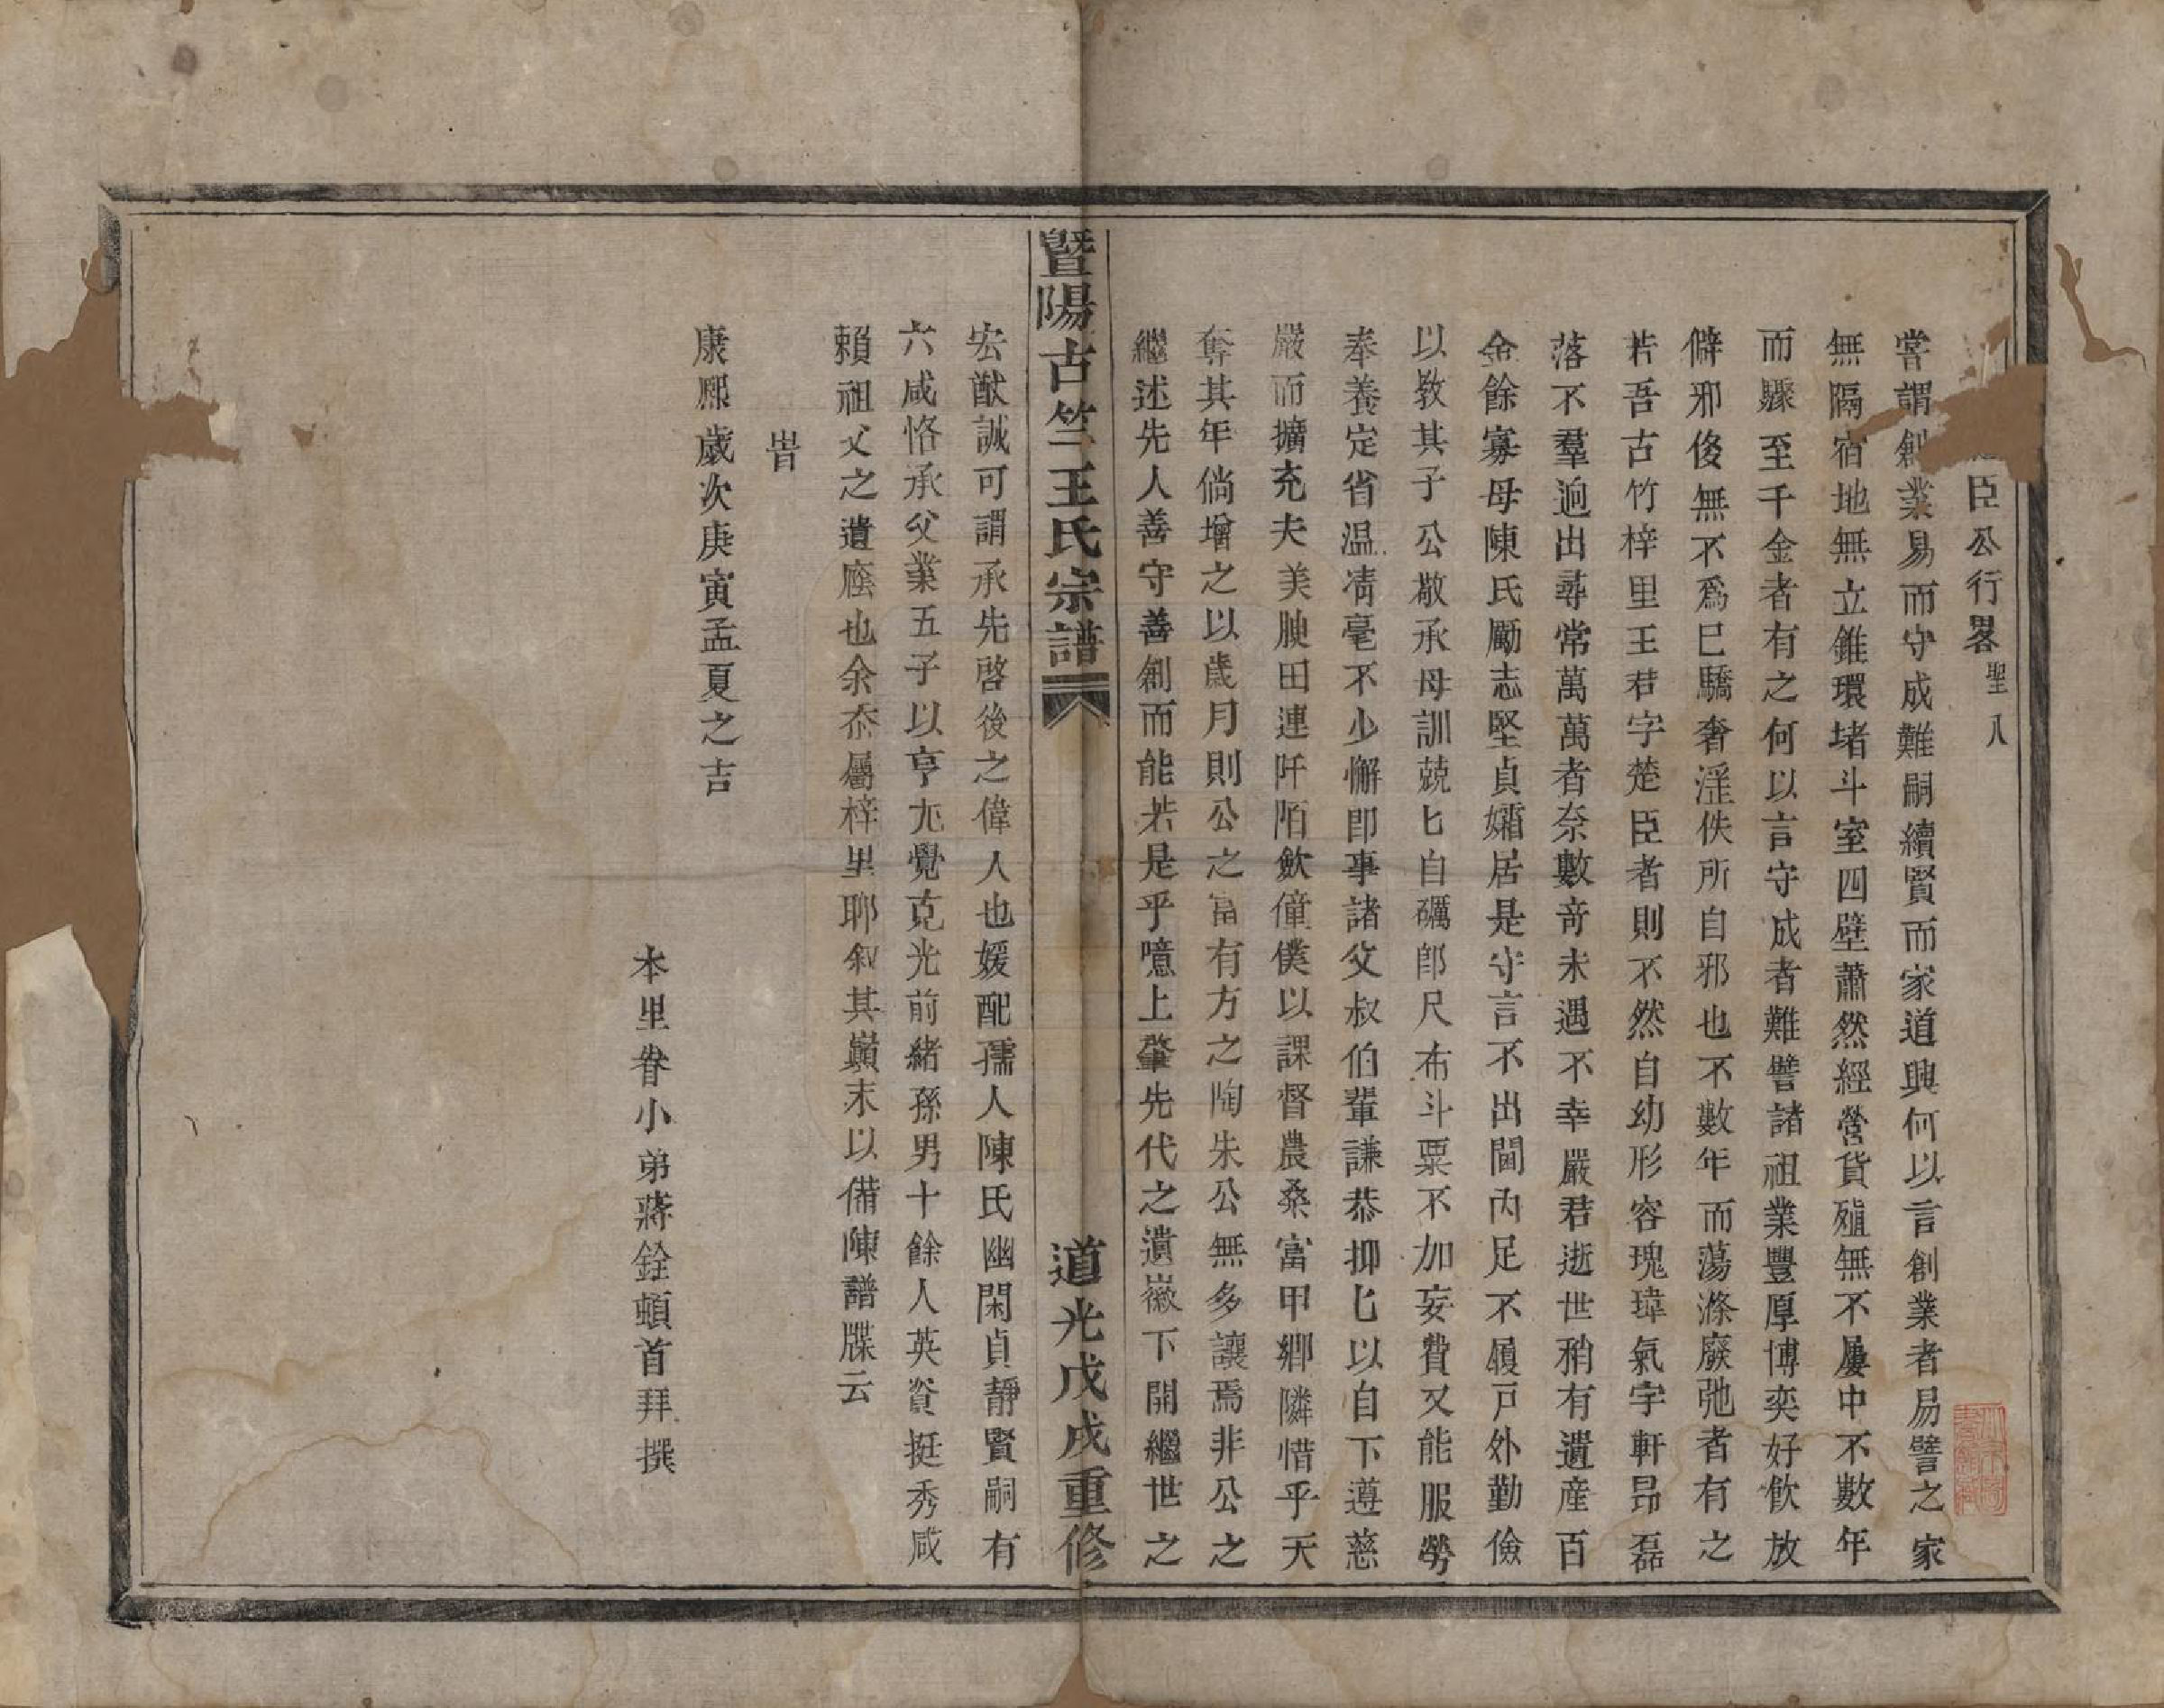 臣公行畧 聖八
嘗謂創業易而守成難嗣續賢而家道興何以言創業者易譬之家
無隔宿地無立錐環堵斗室四壁蕭然經營貨殖無不屢中不數年
而驟至千金者有之何以言守成者難譬諸祖業豐厚博奕好飲放
僻邪侈無不爲已驕奢淫佚所自邪也不數年而蕩滌廢弛者有之
若吾古竹梓里王君字楚臣者則不然自幼形容瑰瑋氣宇軒昂磊
落不羣逈出尋常萬萬者奈數竒未遇不幸嚴君逝世稍有遺産百
金餘寡母陳氏勵志堅貞孀居是守言不出閫內足不履戸外勤儉
以敎其子公敬承母訓兢匕自礪卽尺布斗粟不加妄費又能服勞
奉養定省温凊毫不少懈卽事諸父叔伯輩謙恭抑匕以自下遵慈
嚴而擴充夫美腴田連阡陌歛僮僕以課督農桑富甲鄉隣惜乎天
奪其年倘增之以歲月則公之富有方之陶朱公無多讓焉非公之
繼述先人善守善創而能若是乎噫上肇先代之遺徽下開繼世之
暨陽古竺王氏宗譜
道光戊戌重修
宏猷誠可謂承先啓後之偉人也媛配孺人陳氏幽閑貞靜賢嗣有
六咸恪承父業五子以亨尤覺克光前緒孫男十餘人英資挺秀咸
賴祖父之遺廕也余忝屬梓里聊叙其巔末以備陳譜牒云
旹
康熙歲次庚寅孟夏之吉
本里眷小弟蔣銓頓首拜撰